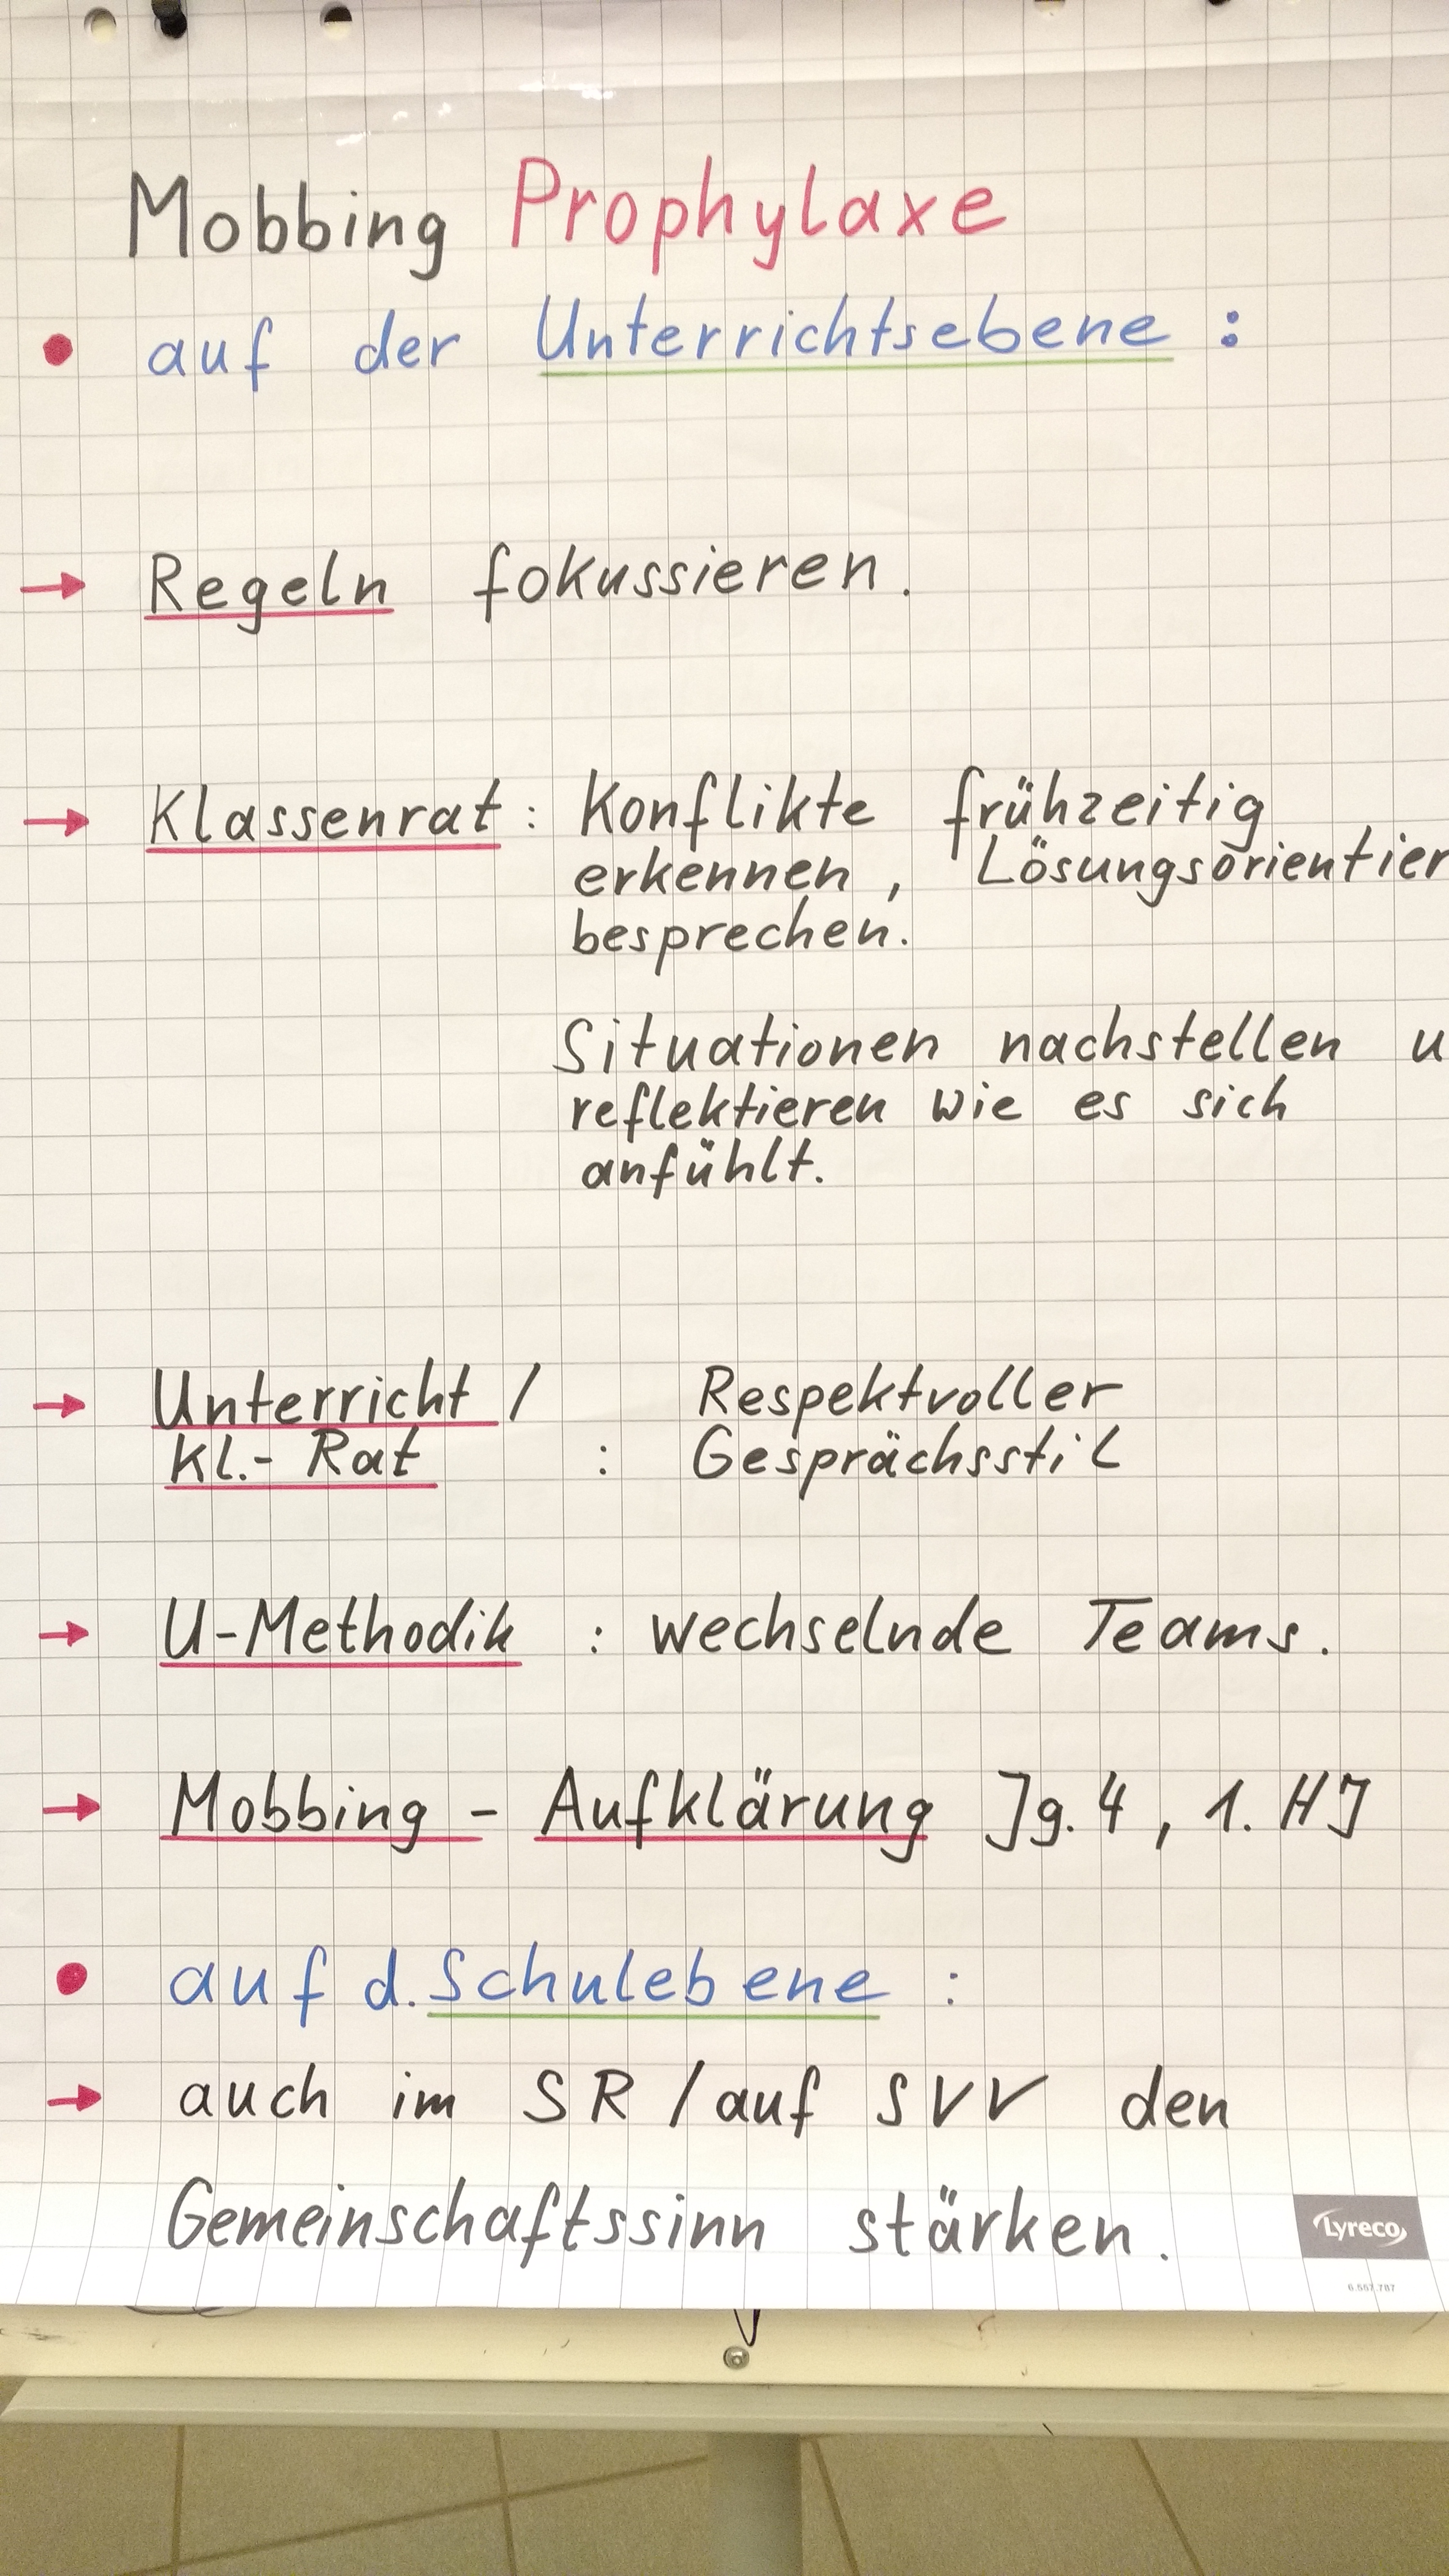 Mobbing Prophylaxe
• auf der Unterrichtsebene :
→ Regeln fokussieren.
→ Klassenrat : Konflikte frühzeitig
erkennen, Lösungsorientier
besprechen.
Situationen nachstellen u
reflektieren wie es sich
anfühlt.
→ Unterricht / Respektvoller
Kl.- Rat : Gesprächsstil
→ U-Methodik : wechselnde Teams.
→ Mobbing - Aufklärung Jg. 4, 1. HJ
• auf d. Schulebene :
→ auch im SR / auf SVV den
Gemeinschaftssinn stärken.
Lyreco
6.557.787